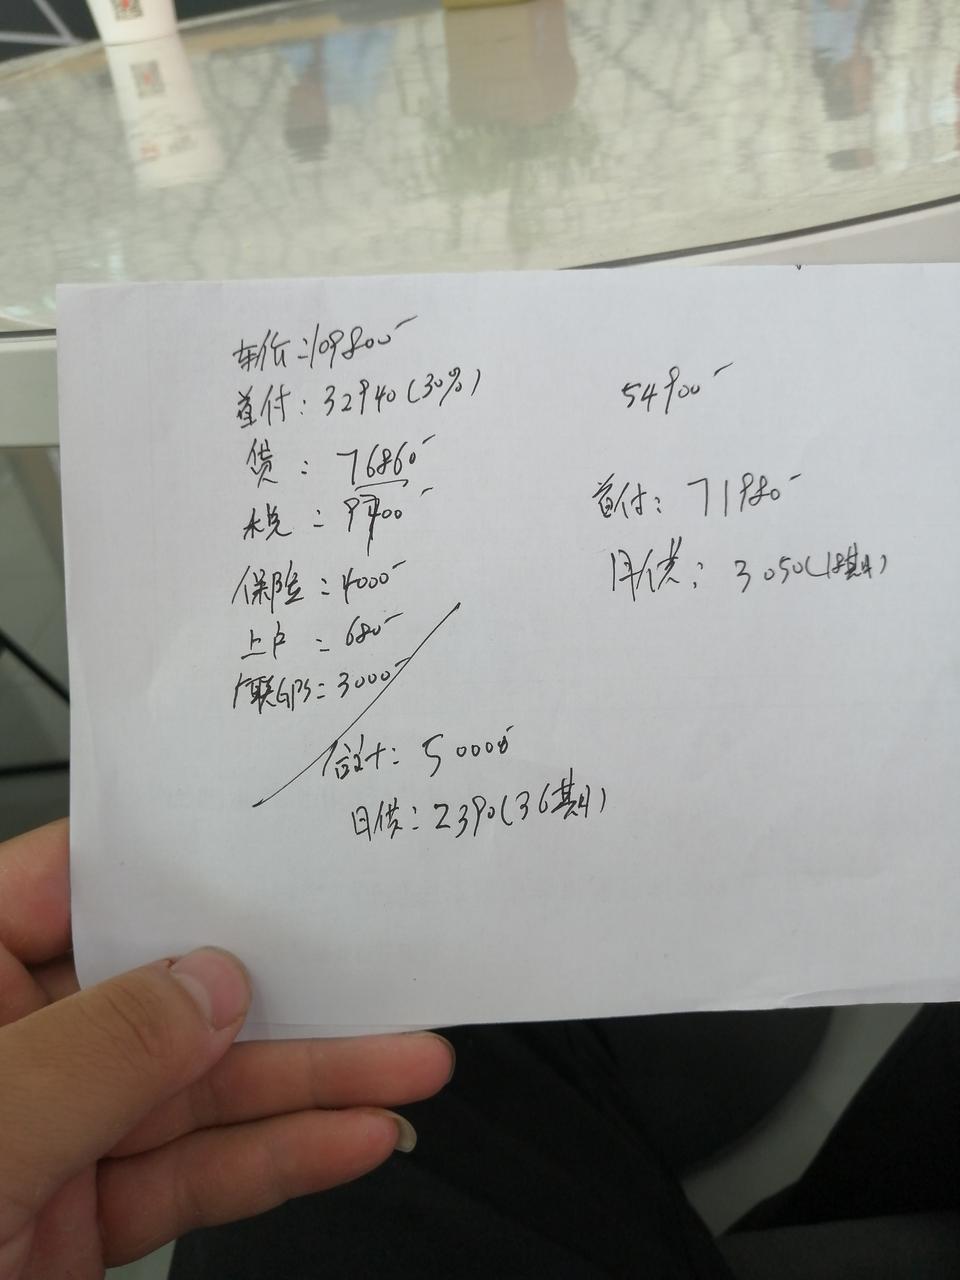 车价:109800
首付:32940(30%)
贷:76860
税:9400
保险:4000
上户:680
广联GPS:3000
合计:50000
月供:2390(36期)
54900
首付:71980
月供:3050(18期)